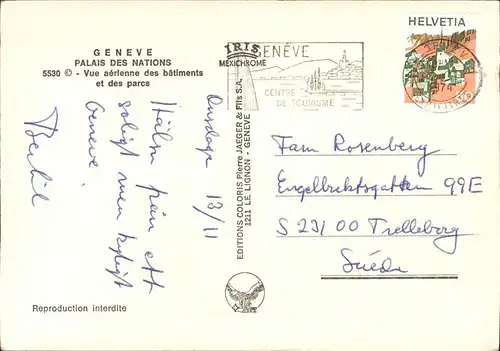 GENEVE
PALAIS DES NATIONS
5530 © - Vue aérienne des bâtiments
et des parcs
Onsdag 13/11
Hälsn från ett
soligt men kyligt
Genève.
Bertil
Reproduction interdite
IRIS
MEXICHROME
EDITIONS COLORIS Pierre JAEGER & Fils S.A.
1211 LE LIGNON - GENEVE
GENÈVE
CENTRE
DE TOURISME
HELVETIA
Fam Rosenberg
Engelbrektsgatan 99E
S 23100 Trelleborg
Suède